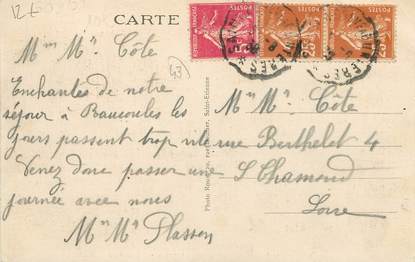 12€
CARTE
43
Mr Mme Côte
Enchantés de notre
séjour à Baucoules les
jours passent trop vite
Venez donc passer une
journée avec nous
Mr Mme Plasson
POSTES
POSTES
POSTES
20c
20c
Mr Mme Côte
rue Berthelet 4
St Chamond
Loire
Saint-Etienne
Photo